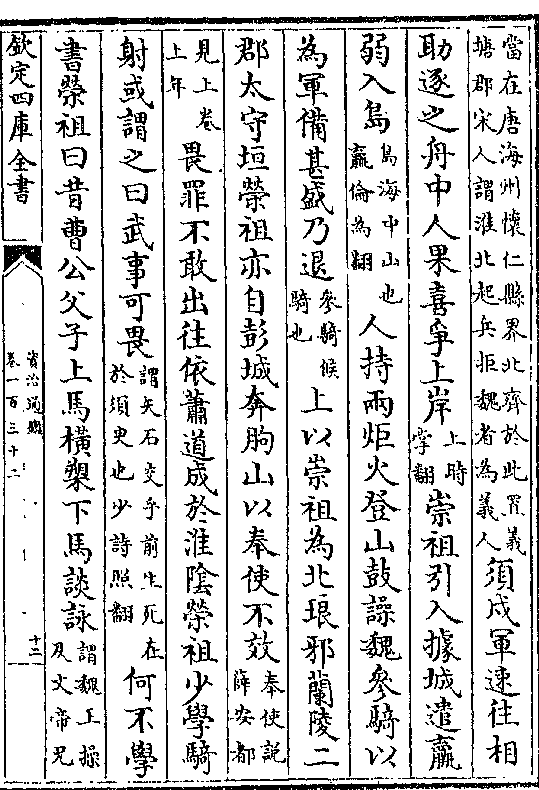 當在唐海州懷仁縣界北齊於此置義
塘郡宋人謂淮北起兵拒魏者為義人須戍軍速往相
助逐之舟中人果喜爭上岸上時掌翻崇祖引入據城遣羸
弱入島島海中山也羸倫為翻人持兩炬火登山鼓譟魏參騎以
為軍備甚盛乃退參騎候騎也上以崇祖為北琅邪蘭陵二
郡太守垣榮祖亦自彭城奔朐山以奉使不效奉使説薛安都
見上卷上年畏罪不敢出往依蕭道成於淮隂榮祖少學騎
射或謂之曰武事可畏謂矢石交乎前生死在於須臾也少詩照翻何不學
書榮祖曰昔曹公父子上馬橫槊下馬談詠謂魏王操及文帝兄
欽定四庫全書
資治通鑑
卷一百三十二
十二